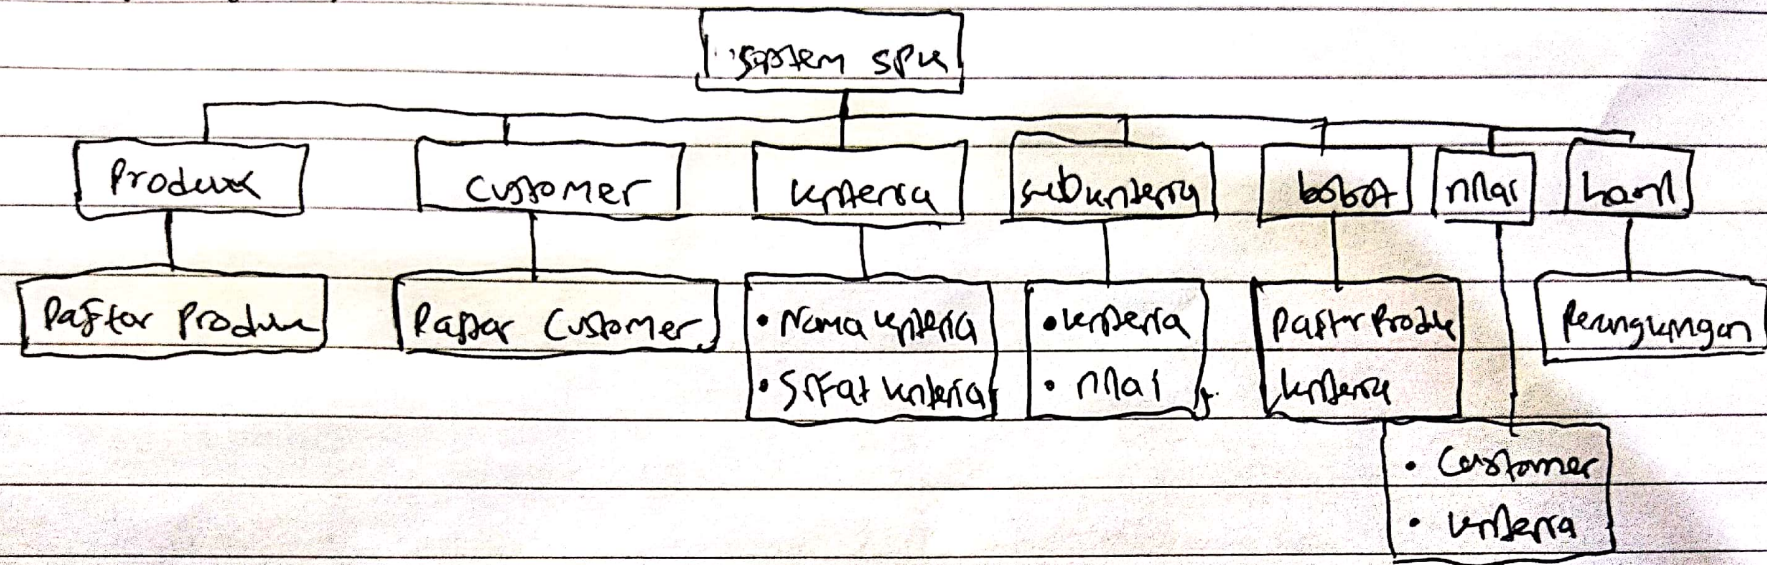 System SPK
Produk
Customer
kriteria
subkriteria
bobot
nilai
hasil
Daftar Produk
Daftar Customer
• Nama kriteria
• Sifat kriteria
• kriteria
• nilai
Daftar Produk
kriteria
Perangkingan
• Customer
• kriteria